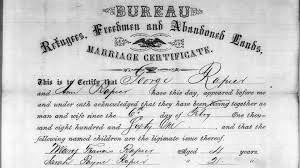 BUREAU
Refugees, Freedmen and Abandoned Lands.
MARRIAGE CERTIFICATE.
This is to Certify, that George Rapier
and Ann Rapier have this day, appeared before me
and under oath acknowledged that they have been living together as
man and wife since the 6th day of Feby One
thousand eight hundred and Forty One and that
the following named children are the legitimate issue thereof
Mary Francis Rapier Aged 4 years
Sarah Rapier " 21 "